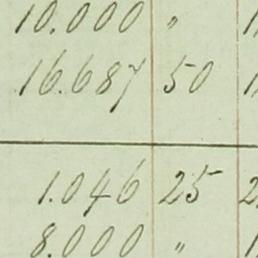 10.000 "
16.687 50
1.046 25
8.000 "